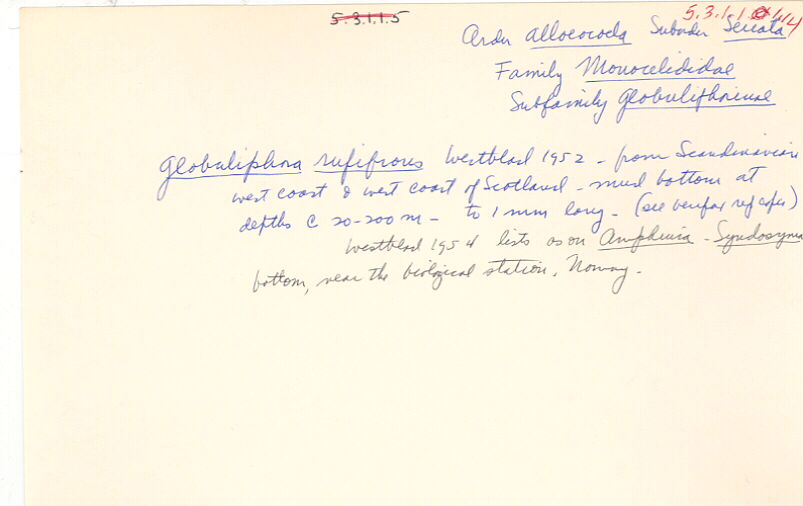 5.3.1.1.5
5.3.1.1.
Order Alloeocoela Suborder Seriata
Family Monocelididae
Subfamily Globuliphorinae
Globuliphora rufifrons Westblad 1952 - from Scandinavian
west coast & west coast of Scotland - mud bottom at
depths c 20-200 m - to 1 mm long - (see verifax ref copies)
Westblad 1954 lists as on Amphiura - Syndosmya
bottom, near the biological station, Norway.